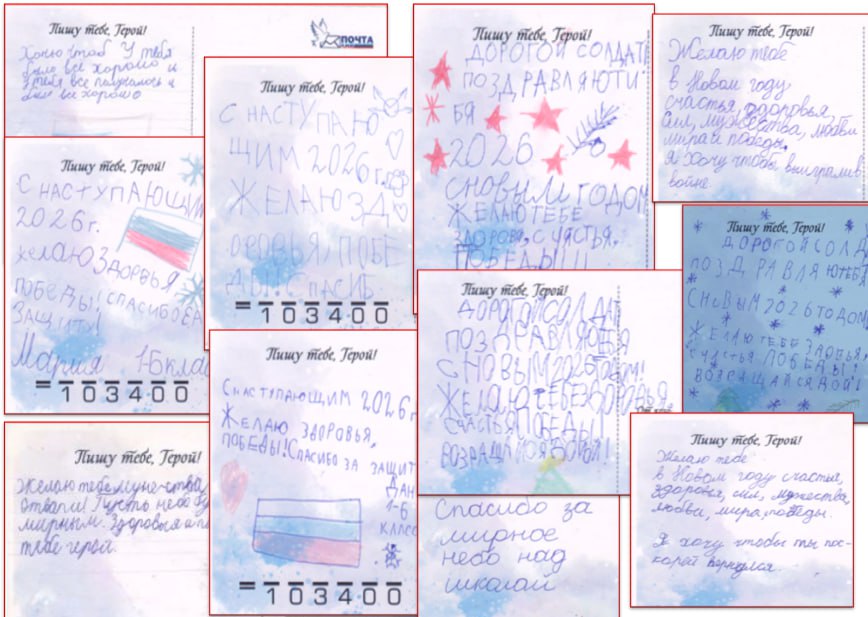 Пишу тебе, Герой!
ПОЧТА
Хочу чтоб у тебя
было все хорошо и
у тебя все получалось и
было все хорошо
Пишу тебе, Герой!
С НАСТУПАЮ
ЩИМ 2026 г.
ЖЕЛАЮ ЗД
ОРОВЬЯ, ПОБЕ
ДЫ! СПАСИБ
103400
Пишу тебе, Герой!
ДОРОГОЙ СОЛДАТ
ПОЗДРАВЛЯЮ ТИ
БЯ
2026
С НОВЫМ ГОДОМ
ЖЕЛАЮ ТЕБЕ
ЗДОРОВЯ, СЧЯСТЬЯ,
ПОБЕДЫ!!!
Пишу тебе, Герой!
Желаю тебе
в Новом году
счастья, здоровья,
сил, мужества, любви
мира и победы.
Я хочу чтобы выиграли в
войне
Пишу тебе, Герой!
С НАСТУПАЮЩИМ
2026 г.
ЖЕЛАЮ ЗДОРВЬЯ
ПОБЕДЫ! СПАСИБО ЗА
ЗАЩИТУ
Мария 1-Б клас
103400
Пишу тебе, Герой!
ДОРОГОЙ СОЛД
ПОЗДРАВЛЯЮ ТЕБЯ
С НОВЫМ 2026 ГОДОМ
ЖЕЛАЮ ТЕБЕ
СЧАСТЬЯ ПОБЕДЫ!
Пишу тебе, Герой!
ДОРОГОЙ СОЛДАТ
ПОЗДРАВЛЯЮ ТЕБЯ
С НОВЫМ 2026 ГОДОМ!
ЖЕЛАЮ ТЕБЕ ЗДОРОВЬЯ
СЧАСТЬЯ ПОБЕДЫ!
Пишу тебе, Герой!
С НАСТУПАЮЩИМ 2026 г
ЖЕЛАЮ ЗДОРОВЬЯ,
ПОБЕДЫ! СПАСИБО ЗА ЗАЩИТ
ДАН
1-Б
КЛАСС
103400
Пишу тебе, Герой!
Желаю тебе
отваги! Пусть небо
мирным. Здоровья
тебе герой.
Спасибо за
мирное
небо над
школой
Пишу тебе, Герой!
Желаю тебе
в Новом году счастья,
здоровья, сил, мужества,
любви, мира, победы.
Я хочу чтобы ты пос-
корей вернулся.